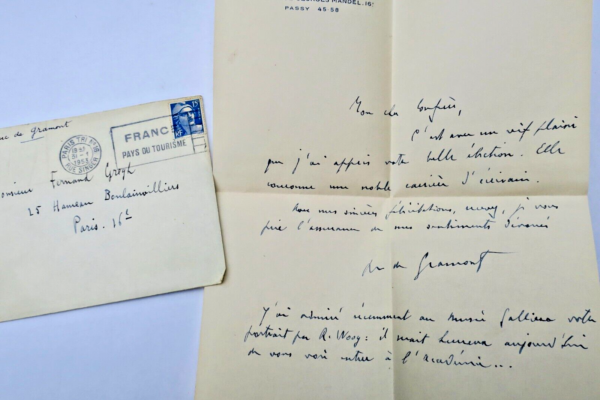 GEORGES MANDEL. 16ᵉ
PASSY 45 58
Mon cher Confrère,
C'est avec un vif plaisir
que j'ai appris votre belle élection. Elle
couronne une noble carrière d'écrivain.
Avec mes sincères félicitations, je vous
prie l'assurance de mes sentiments dévoués
de Gramont
J'ai admiré récemment au musée Galliera votre
portrait par R. Woog : il serait heureux aujourd'hui
de vous voir entrer à l'Académie...
de Gramont
PARIS
1953
15F
RF
FRANCE
PAYS DU TOURISME
Monsieur Fernand Gregh
25 Hameau Boulainvilliers
Paris. 16ᵉ